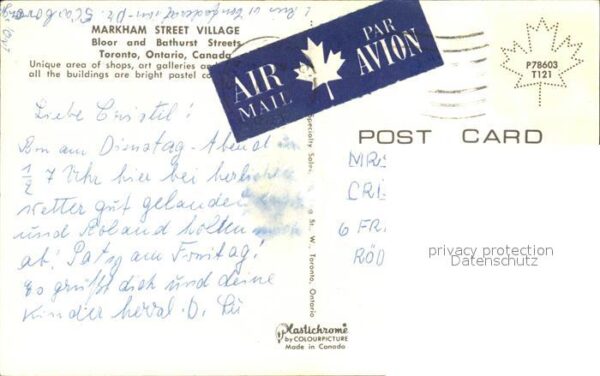 MARKHAM STREET VILLAGE
Bloor and Bathurst Streets
Toronto, Ontario, Canada
Unique area of shops, art galleries and
all the buildings are bright pastel co
AIR MAIL
PAR AVION
P78603
T121
POST CARD
Liebe Cristel!
Bin am Dienstag-Abend
1/2 7 Uhr hier bei
wetter gut gelandet
und Roland holten
ab!
am Freitag!
Es grüßt dich und deine
Kinder
MRS
6 FR
RÖD
privacy protection
Datenschutz
pecialty Sales,
St., W., Toronto, Ontario
Plastichrome
by COLOURPICTURE
Made in Canada